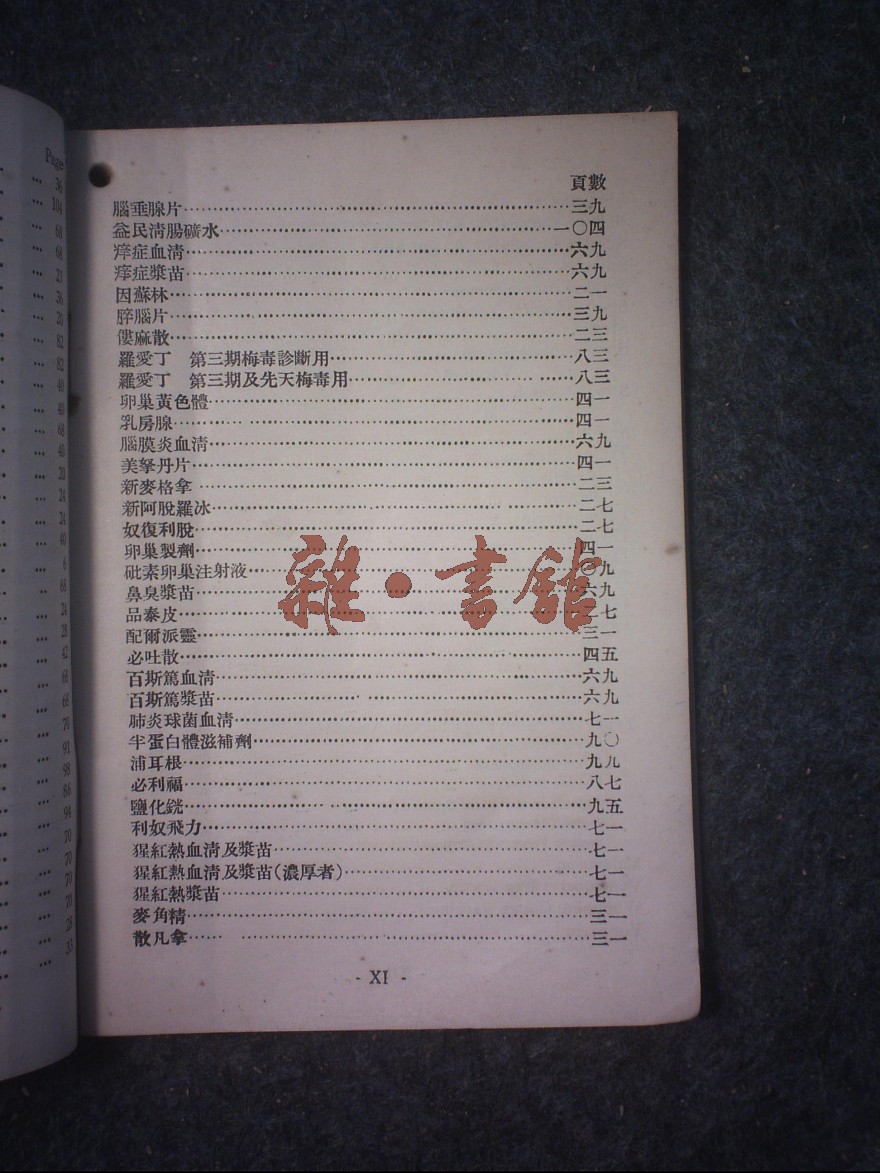 Page
36
104
68
68
21
36
20
82
82
40
40
68
40
20
24
24
40
6
68
24
28
42
68
68
70
91
98
86
94
70
70
70
70
28
33
頁數
腦垂腺片 三九
益民清腸礦水 一〇四
痒症血清 六九
痒症漿苗 六九
因蘇林 二一
膟腦片 三九
僂麻散 二三
羅愛丁 第三期梅毒診斷用 八三
羅愛丁 第三期及先天梅毒用 八三
卵巢黃色體 四一
乳房腺 四一
腦膜炎血清 六九
美孥丹片 四一
新麥格拿 二三
新阿脫羅冰 二七
奴復利脫 二七
卵巢製劑 四一
砒素卵巢注射液 〇九
鼻臭漿苗 六九
品泰皮 二七
配爾派靈 三一
必吐散 四五
百斯篤血清 六九
百斯篤漿苗 六九
肺炎球菌血清 七一
半蛋白體滋補劑 九〇
浦耳根 九九
必利福 八七
鹽化銧 九五
利奴飛力 七一
猩紅熱血清及漿苗 七一
猩紅熱血清及漿苗(濃厚者) 七一
猩紅熱漿苗 七一
麥角精 三一
散凡拿 三一
- XI -
雜·書館